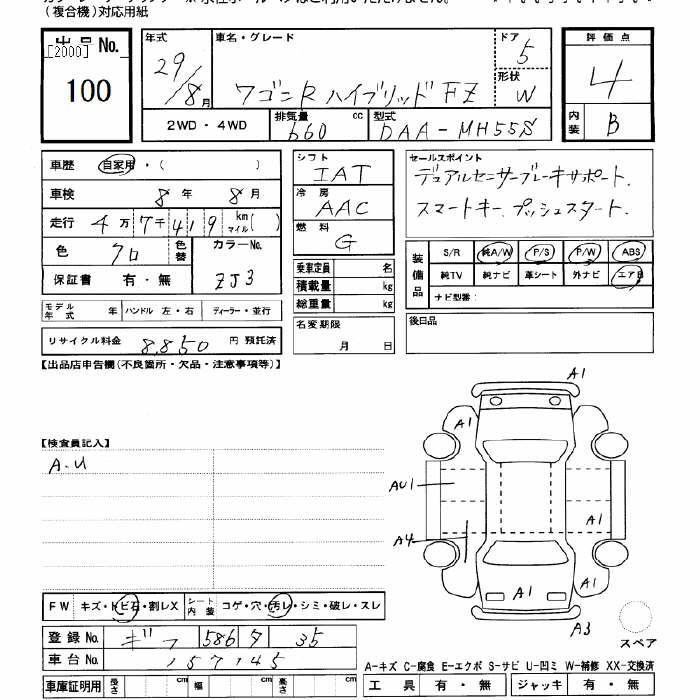 (複合機)対応用紙
出品No.
[2000]
100
年式
29/8月
車名・グレード
ワゴンR ハイブリッド FZ
ドア
5
形状
W
評価点
4
内装
B
2WD・4WD
排気量
660 cc
型式
DAA-MH55S
車歴 自家用・( )
車検 8年 8月
走行 4万7千419 km マイル( )
色 クロ 色替
カラーNo.
ZJ3
保証書 有・無
モデル年式 年 ハンドル 左・右 ディーラー・並行
リサイクル料金 8,850円 預託済
シフト
IAT
冷房
AAC
燃料
G
乗車定員 名
積載量 kg
総重量 kg
名変期限
月 日
セールスポイント
デュアルセンサーブレーキサポート.
スマートキー. プッシュスタート.
装備品
S/R 純A/W P/S P/W ABS
純TV 純ナビ 革シート 外ナビ エアB
ナビ型番:
後日品
【出品店申告欄(不良箇所・欠品・注意事項等)】
【検査員記入】
A.U
A1
A1
AU1
A4
A1
A1
A3
スペア
FW キズ・トビ石・割レX シート内装 コゲ・穴・汚レ・シミ・破レ・スレ
登録No. ギフ 586 ワ 35
車台No. 157145
車庫証明用 長さ cm 幅 cm 高さ cm
A-キズ C-腐食 E-エクボ S-サビ U-凹ミ W-補修 XX-交換済
工具 有・無 ジャッキ 有・無